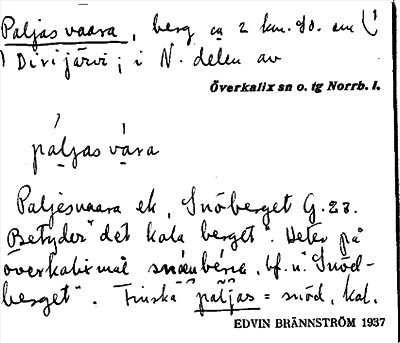 Paljasvaara, berg ca 2 km. SO. om
Dirijärvi; i N. delen av
Överkalix sn o. tg Norrb. l.
páljas vára
Paljesvaara ek, Snöberget G. 23.
Betyder "det kala berget". Heter på
överkalixmål, bf. n. "Snöd-
berget". Finska paljas = snöd, kal.
EDVIN BRÄNNSTRÖM 1937